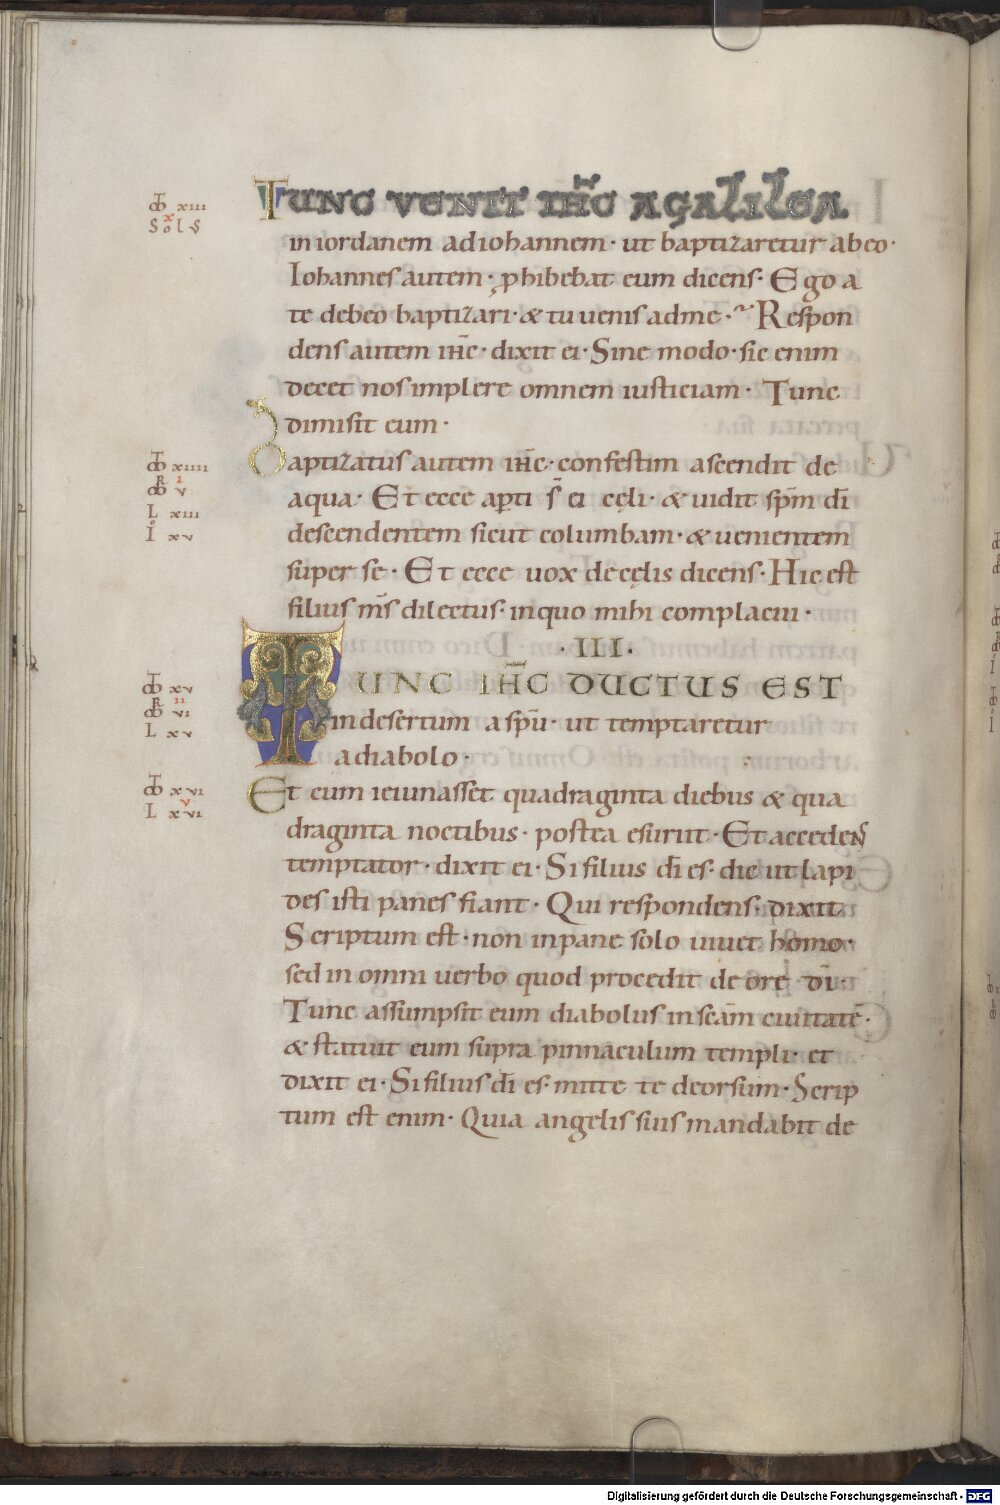 TUNC VENIT IH̅C A GALILEA
in iordanem ad iohannem · ut baptizaretur ab eo ·
Iohannes autem · ꝓhibebat eum dicens · Ego a
te debeo baptizari · & tu uenis ad me · Respon
dens autem ih̅c · dixit ei · Sine modo · sic enim
decet nos implere omnem iusticiam · Tunc
dimisit eum ·
Baptizatus autem ih̅c · confestim ascendit de
aqua · Et ecce aꝑti s̅ ei cęli · & uidit sp̅m d̅i
descendentem sicut columbam · & uenientem
super se · Et ecce uox de cęlis dicens · Hic est
filius m̅s dilectus · in quo mihi complacui ·
· III ·
TUNC IH̅C DUCTUS EST
in desertum a sp̅u · ut temptaretur
a diabolo ·
Et cum ieiunasset quadraginta diebus & qua
draginta noctibus · postea esuriit · Et accedens
temptator · dixit ei · Si filius d̅i es · dic ut lapi
des isti panes fiant · Qui respondens · dixit
Scriptum est · non in pane solo uiuet homo ·
sed in omni uerbo quod procedit de ore d̅i ·
Tunc assumpsit eum diabolus in sc̅am ciuitate̅ ·
& statuit eum supra pinnaculum templi · et
dixit ei · Si filius d̅i es · mitte te deorsum · Scrip
tum est enim · Quia angelis suis mandabit de
xiii
x
xiiii
R i
v
L xiii
I xv
xv
R ii
vi
L xv
xvi
v
L xvi
Digitalisierung gefördert durch die Deutsche Forschungsgemeinschaft - DFG